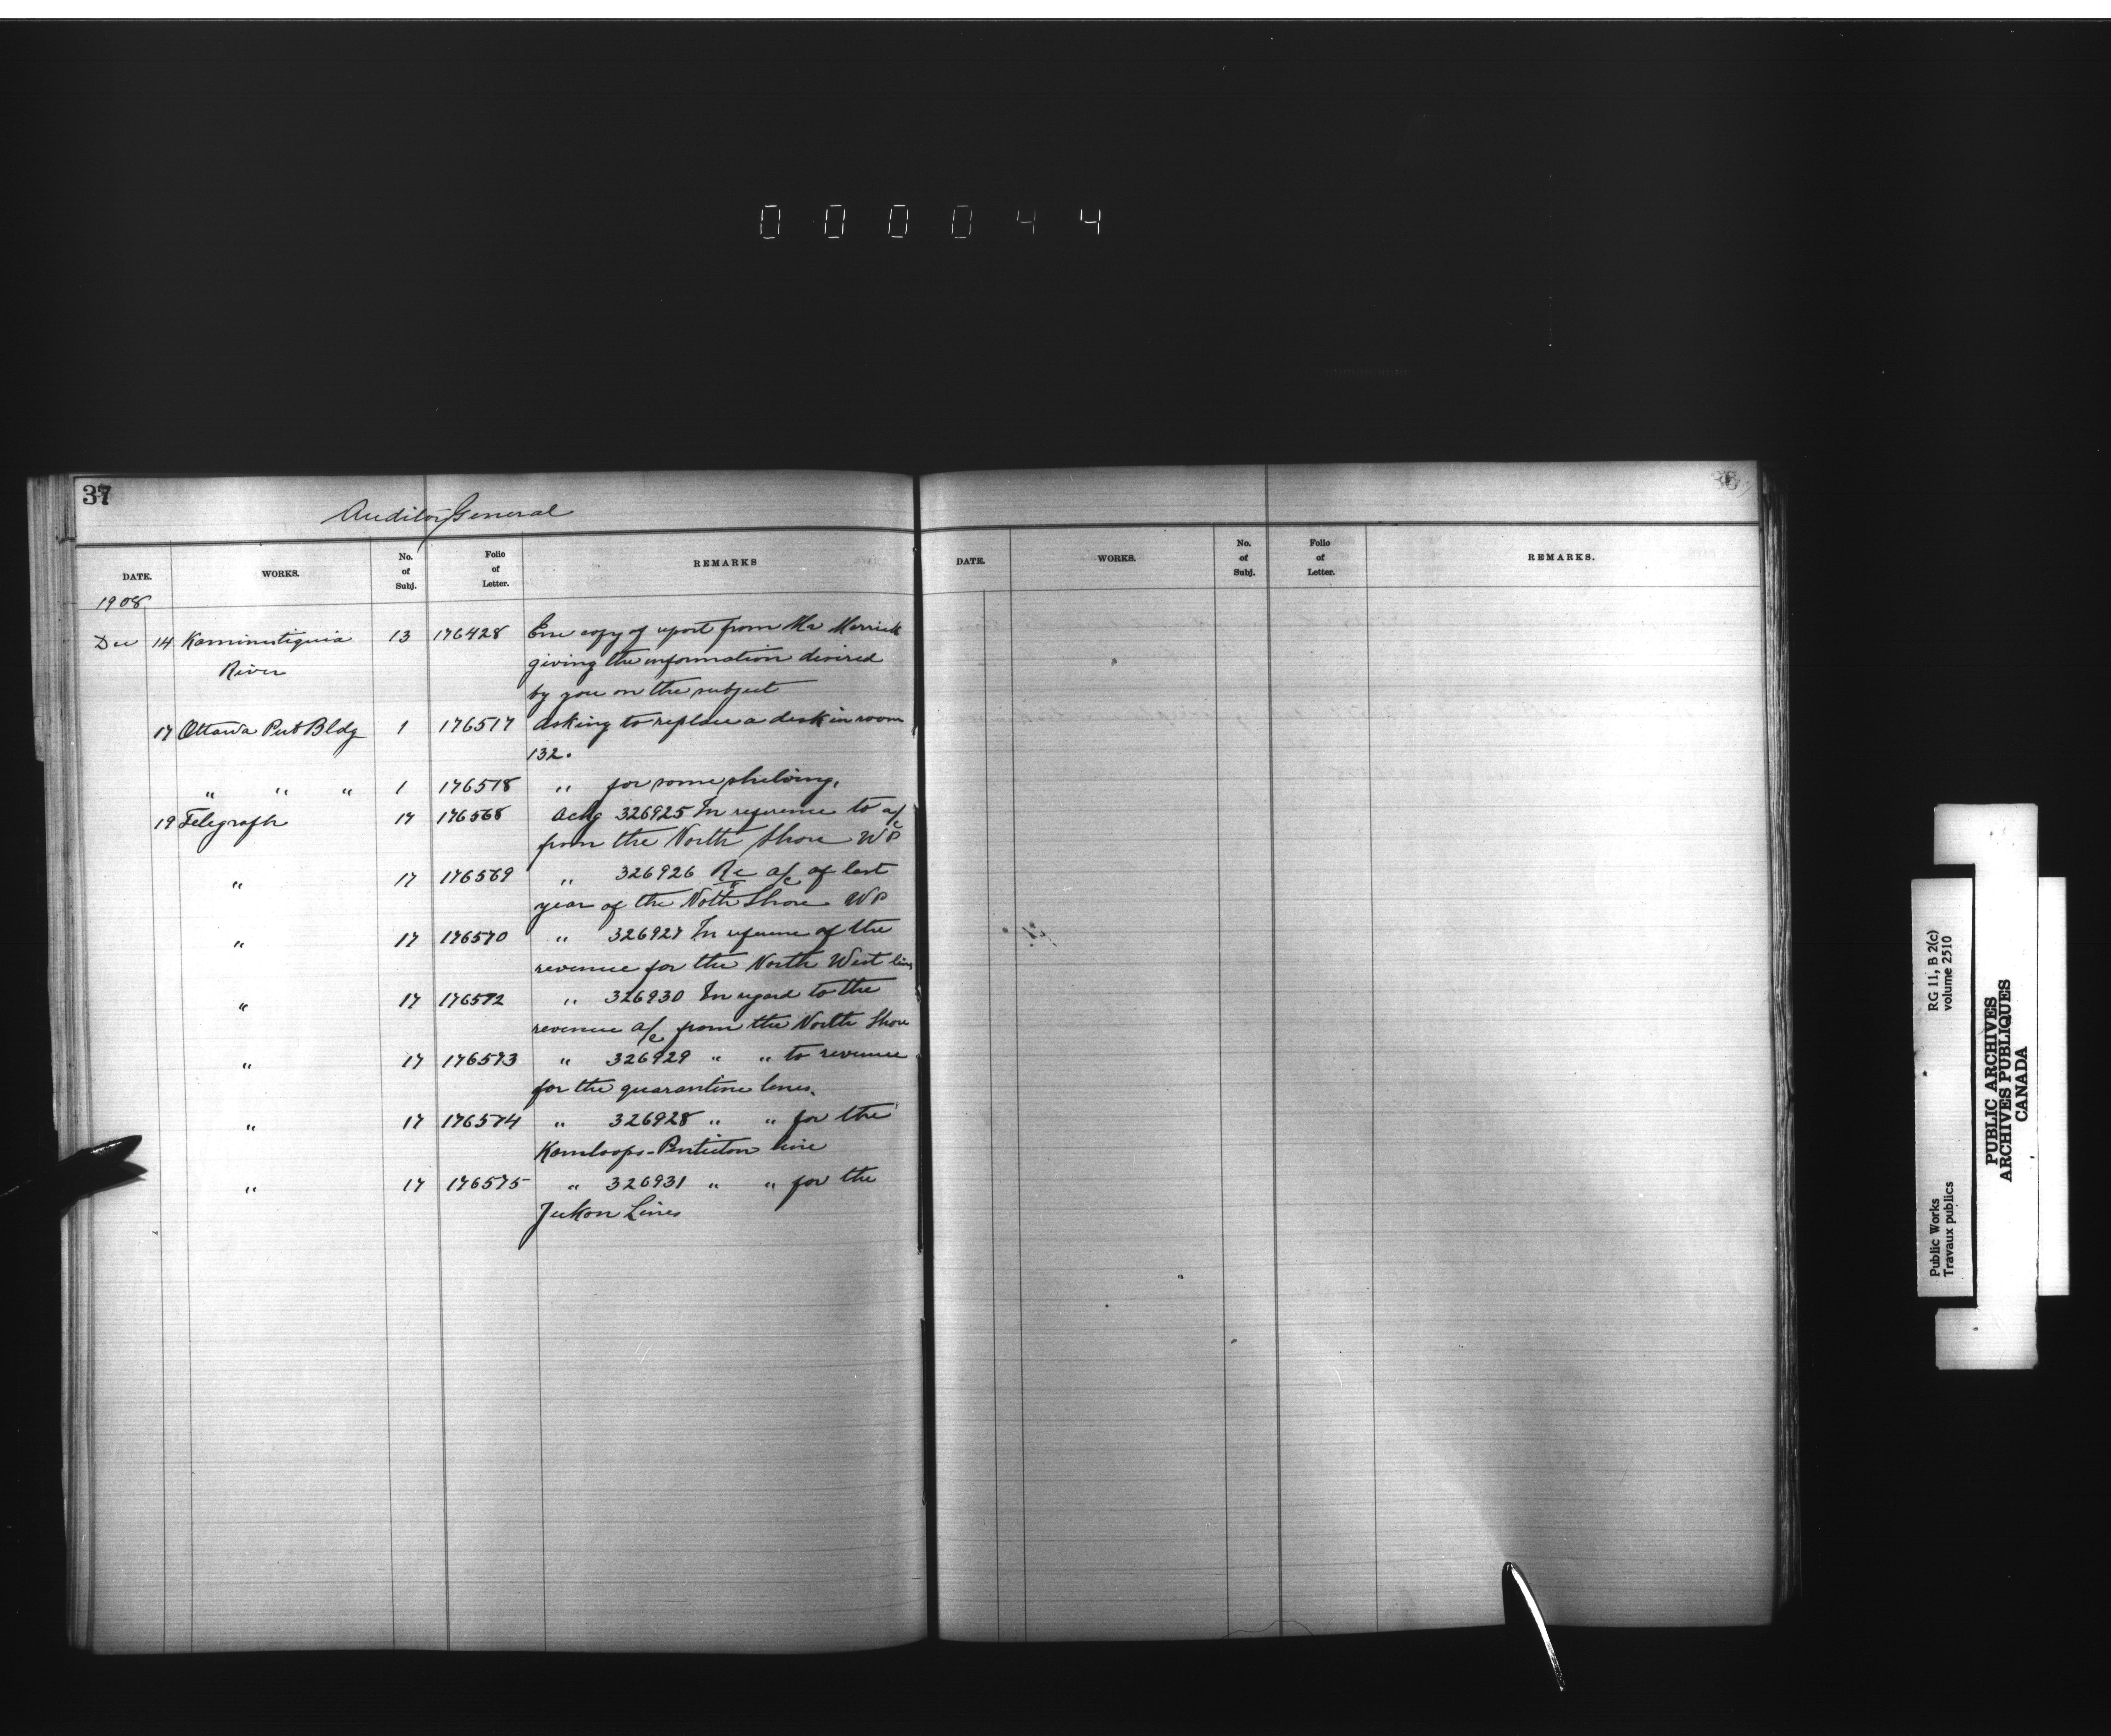 000044
37
Auditor General
DATE. WORKS. No. of Subj. Folio of Letter. REMARKS
1908
Dec 14 Kaministiquia 13 176428 Enc copy of report from Mr Merrick
River giving the information desired
by you on the subject
17 Ottawa Pub Bldg 1 176517 Asking to replace a desk in room
132.
" " " 1 176518 " for some shelving.
19 Telegraph 17 176568 Ackg 326925 In reference to a/c
from the North Shore WP
" 17 176569 " 326926 Re a/c of last
year of the North Shore WP
" 17 176570 " 326927 In reference of the
revenue for the North West lines
" 17 176572 " 326930 In regard to the
revenue a/c from the North Shore
" 17 176573 " 326929 " " to revenue
for the quarantine lines.
" 17 176574 " 326928 " " for the
Kamloops-Penticton line
" 17 176575 " 326931 " " for the
Yukon Lines
38
DATE. WORKS. No. of Subj. Folio of Letter. REMARKS.
Public Works RG 11, B 2(c)
Travaux publics volume 2510
PUBLIC ARCHIVES
ARCHIVES PUBLIQUES
CANADA